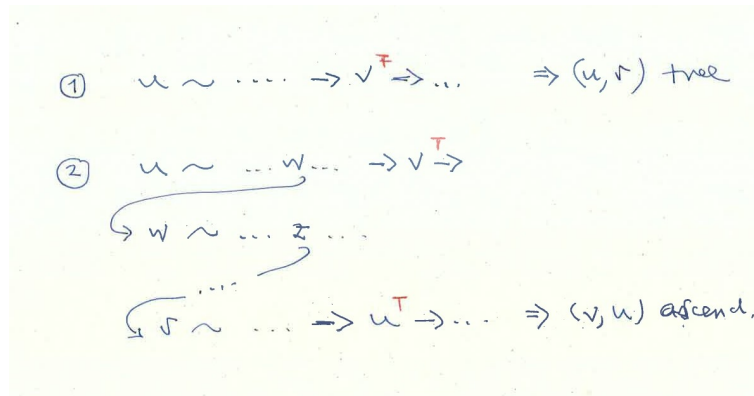 ① u ~ .... → v F → ... ⇒ (u, v) tree
② u ~ ... w ... → v T →
w ~ ... z ....
....
v ~ ... → u T → ... ⇒ (v, u) ascend.